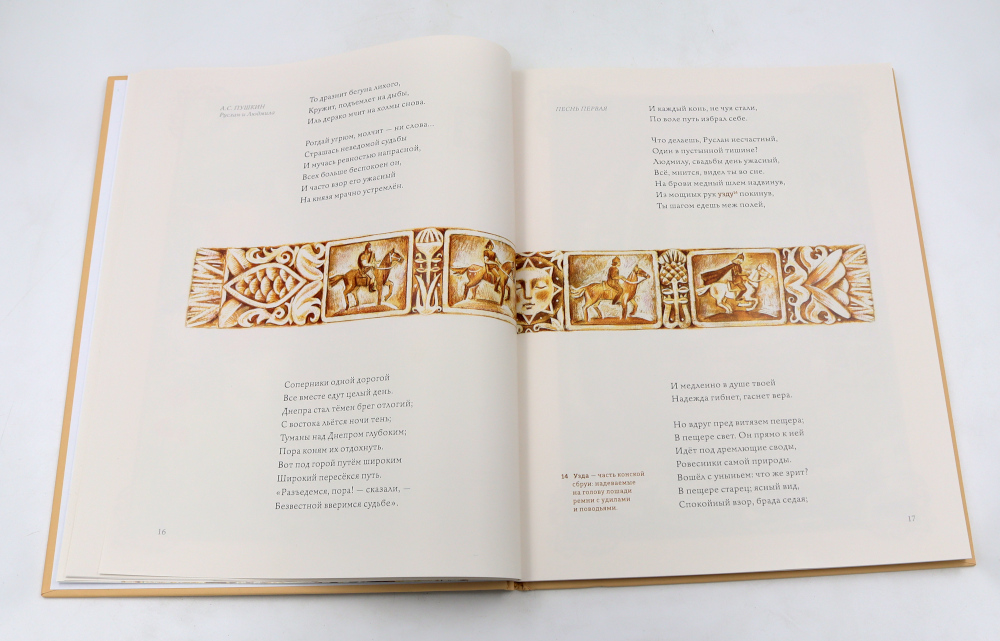 А.С. ПУШКИН
Руслан и Людмила
То дразнит бегуна лихого,
Кружит, подъемлет на дыбы,
Иль дерзко мчит на холмы снова.
Рогдай угрюм, молчит — ни слова...
Страшась неведомой судьбы
И мучась ревностью напрасной,
Всех больше беспокоен он,
И часто взор его ужасный
На князя мрачно устремлён.
Соперники одной дорогой
Все вместе едут целый день.
Днепра стал тёмен брег отлогий;
С востока льётся ночи тень;
Туманы над Днепром глубоким;
Пора коням их отдохнуть.
Вот под горой путём широким
Широкий пересёкся путь.
«Разъедемся, пора! — сказали, —
Безвестной вверимся судьбе».
16
ПЕСНЬ ПЕРВАЯ
И каждый конь, не чуя стали,
По воле путь избрал себе.
Что делаешь, Руслан несчастный,
Один в пустынной тишине?
Людмилу, свадьбы день ужасный,
Всё, мнится, видел ты во сне.
На брови медный шлем надвинув,
Из мощных рук узду¹⁴ покинув,
Ты шагом едешь меж полей,
И медленно в душе твоей
Надежда гибнет, гаснет вера.
Но вдруг пред витязем пещера;
В пещере свет. Он прямо к ней
Идёт под дремлющие своды,
Ровесники самой природы.
Вошёл с уныньем: что же зрит?
В пещере старец; ясный вид,
Спокойный взор, брада седая;
14 Узда — часть конской
сбруи: надеваемые
на голову лошади
ремни с удилами
и поводьями.
17